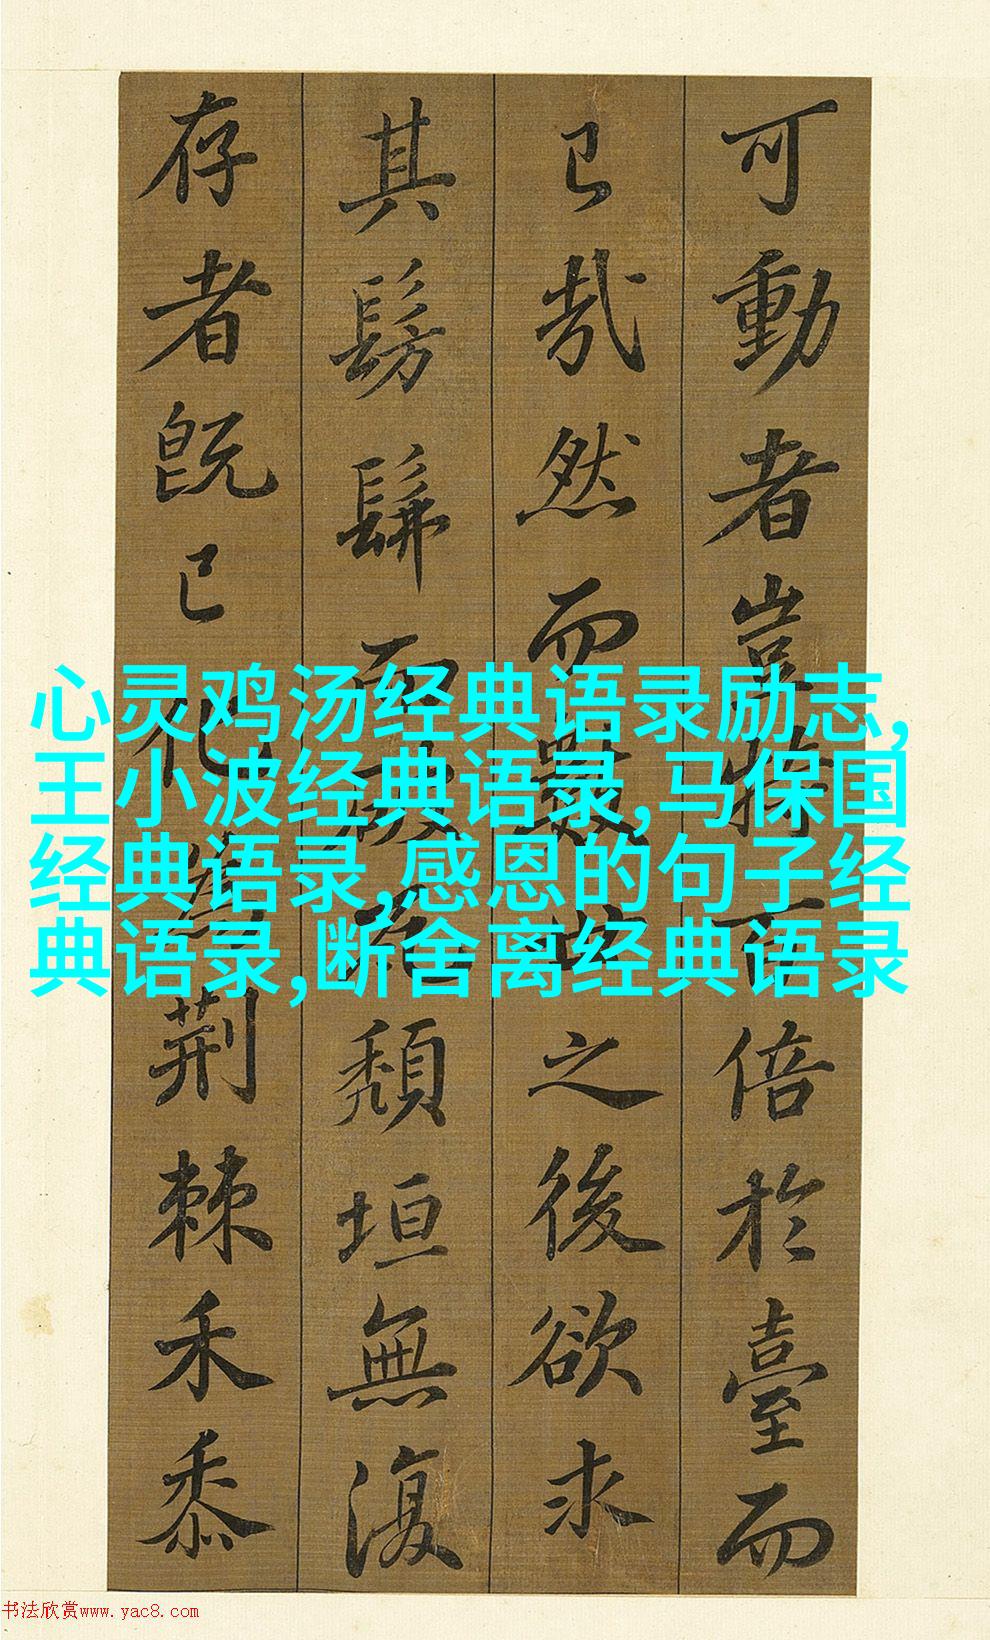 可動者豈特百倍於臺而
已哉然而數世之後欲求
其髣髴而破瓦頹垣無復
存者既已化為荊棘禾黍
心灵鸡汤经典语录励志,
王小波经典语录,马保国
经典语录,感恩的句子经
典语录,断舍离经典语录
书法欣赏www.yac8.com